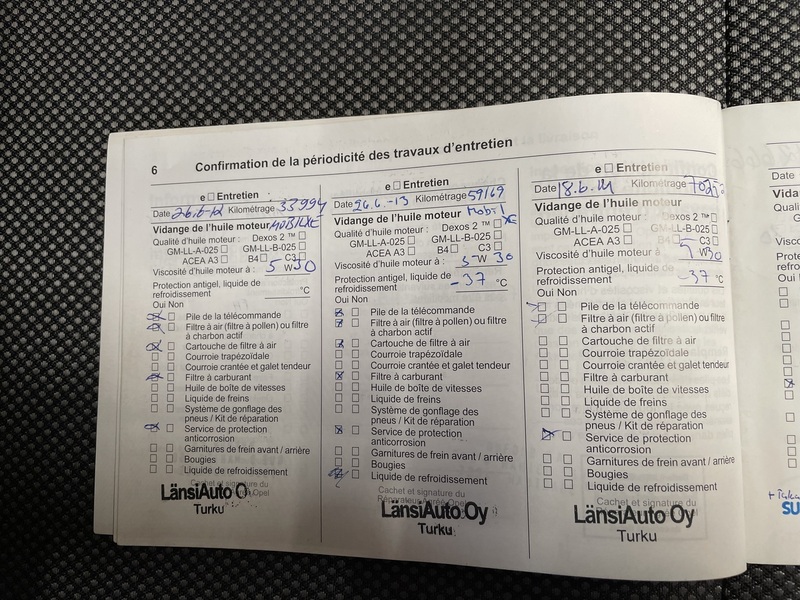 6 Confirmation de la périodicité des travaux d'entretien
e ☐ Entretien
Date 26.6-12 Kilométrage 33994
Vidange de l'huile moteur
Qualité d'huile moteur : Dexos 2 ™ ☐
GM-LL-A-025 ☐ GM-LL-B-025 ☐
ACEA A3 ☐ B4 ☐ C3 ☐
Viscosité d'huile moteur à : 5 W 30
Protection antigel, liquide de
refroidissement °C
Oui Non
Pile de la télécommande
Filtre à air (filtre à pollen) ou filtre
à charbon actif
Cartouche de filtre à air
Courroie trapézoïdale
Courroie crantée et galet tendeur
Filtre à carburant
Huile de boîte de vitesses
Liquide de freins
Système de gonflage des
pneus / Kit de réparation
Service de protection
anticorrosion
Garnitures de frein avant / arrière
Bougies
Liquide de refroidissement
Cachet et signature du
Opel
LänsiAuto O
Turku
e ☐ Entretien
Date 26.6.-13 Kilométrage 59169
Vidange de l'huile moteur Mobil
Qualité d'huile moteur : Dexos 2 ™ ☒
GM-LL-A-025 ☐ GM-LL-B-025 ☐
ACEA A3 ☐ B4 ☐ C3 ☐
Viscosité d'huile moteur à : 5 W 30
Protection antigel, liquide de
refroidissement -37 °C
Oui Non
Pile de la télécommande
Filtre à air (filtre à pollen) ou filtre
à charbon actif
Cartouche de filtre à air
Courroie trapézoïdale
Courroie crantée et galet tendeur
Filtre à carburant
Huile de boîte de vitesses
Liquide de freins
Système de gonflage des
pneus / Kit de réparation
Service de protection
anticorrosion
Garnitures de frein avant / arrière
Bougies
Liquide de refroidissement
Cachet et signature du
Réparateur Agréé Opel
LänsiAuto Oy
Turku
e ☐ Entretien
Date 18.6.14 Kilométrage
Vidange de l'huile moteur
Qualité d'huile moteur : Dexos 2 ™ ☐
GM-LL-A-025 ☐ GM-LL-B-025 ☐
ACEA A3 ☐ B4 C3 ☐
Viscosité d'huile moteur à 5 W30
Protection antigel, liquide de
refroidissement -37 °C
Oui Non
Pile de la télécommande
Filtre à air (filtre à pollen) ou filtre
à charbon actif
Cartouche de filtre à air
Courroie trapézoïdale
Courroie crantée et galet tendeur
Filtre à carburant
Huile de boîte de vitesses
Liquide de freins
Système de gonflage des
pneus / Kit de réparation
Service de protection
anticorrosion
Garnitures de frein avant / arrière
Bougies
Liquide de refroidissement
Cachet et signature du
LänsiAuto Oy
Turku
Date
Vida
Qualit
G
Visco
Prote
refroi
Oui N
SU